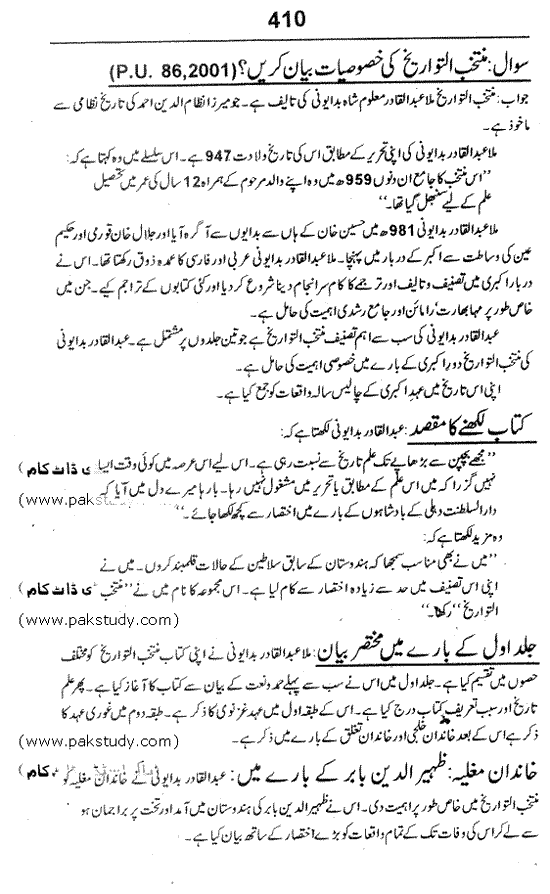 410
سوال: منتخب التواریخ کی خصوصیات بیان کریں؟ (P.U. 86,2001)
جواب: منتخب التواریخ ملا عبدالقادر معلوم شاہ بدایونی کی تالیف ہے۔ جو میرزا نظام الدین احمد کی تاریخ نظامی سے
ماخوذ ہے۔
ملا عبدالقادر بدایونی کی اپنی تحریر کے مطابق اس کی تاریخ ولادت 947 ہے۔ اس سلسلے میں وہ کہتا ہے کہ:
"اس منتخب کا جامع ان دنوں 959ھ میں وہ اپنے والد مرحوم کے ہمراہ 12 سال کی عمر میں تحصیل
علم کے لیے سنبھل گیا تھا۔"
ملا عبدالقادر بدایونی 981ھ میں حسین خان کے ہاں سے بدایوں سے آگرہ آیا اور جلال خان قوری اور حکیم
عین کی وساطت سے اکبر کے دربار میں پہنچا۔ ملا عبدالقادر بدایونی عربی اور فارسی کا عمدہ ذوق رکھتا تھا۔ اس نے
دربار اکبری میں تصنیف و تالیف اور ترجمے کا کام سرانجام دینا شروع کر دیا اور کئی کتابوں کے تراجم کیے۔ جن میں
خاص طور پر مہابھارت، رامائن اور جامع رشدی اہمیت کی حامل ہے۔
عبدالقادر بدایونی کی سب سے اہم تصنیف منتخب التواریخ ہے جو تین جلدوں پر مشتمل ہے۔ عبدالقادر بدایونی
کی منتخب التواریخ دور اکبری کے بارے میں خصوصی اہمیت کی حامل ہے۔
اپنی اس تاریخ میں عہد اکبری کے چالیس سالہ واقعات کو جمع کیا ہے۔
کتاب لکھنے کا مقصد: عبدالقادر بدایونی لکھتا ہے کہ:
"مجھے بچپن سے بڑھاپے تک علم تاریخ سے نسبت رہی ہے۔ اس لیے اس عرصہ میں کوئی وقت ایسا ی ڈاٹ کام )
نہیں گزرا کہ میں اس علم کے مطابق یا تحریر میں مشغول نہیں رہا۔ بارہا میرے دل میں آیا کہ (www.pakstudy.com)
دارالسلطنت دہلی کے بادشاہوں کے بارے میں اختصار سے کچھ لکھا جائے۔"
وہ مزید لکھتا ہے کہ:
"میں نے بھی مناسب سمجھا کہ ہندوستان کے سابق سلاطین کے حالات قلمبند کروں۔ میں نے
اپنی اس تصنیف میں حد سے زیادہ اختصار سے کام لیا ہے۔ اس مجموعہ کا نام میں نے "منتخب ی ڈاٹ کام )
التواریخ" رکھا۔"
(www.pakstudy.com)
جلد اول کے بارے میں مختصر بیان: ملا عبدالقادر بدایونی نے اپنی کتاب منتخب التواریخ کو مختلف
حصوں میں تقسیم کیا ہے۔ جلد اول میں اس نے سب سے پہلے حمد و نعت کے بیان سے کتاب کا آغاز کیا ہے۔ پھر علم
تاریخ اور سبب تعریف کتاب درج کیا ہے۔ اس کے طبقہ اول میں عہد غزنوی کا ذکر ہے۔ طبقہ دوم میں غوری عہد کا
ذکر ہے اس کے بعد خاندان خلجی اور خاندان تغلق کے بارے میں ذکر ہے۔ (www.pakstudy.com)
خاندان مغلیہ: ظہیر الدین بابر کے بارے میں: عبدالقادر بدایونی نے خاندان مغلیہ کو کام )
منتخب التواریخ میں خاص طور پر اہمیت دی۔ اس نے ظہیر الدین بابر کی ہندوستان میں آمد اور تخت پر براجمان ہو
سے لے کر اس کی وفات تک کے تمام واقعات کو بڑے اختصار کے ساتھ بیان کیا ہے۔